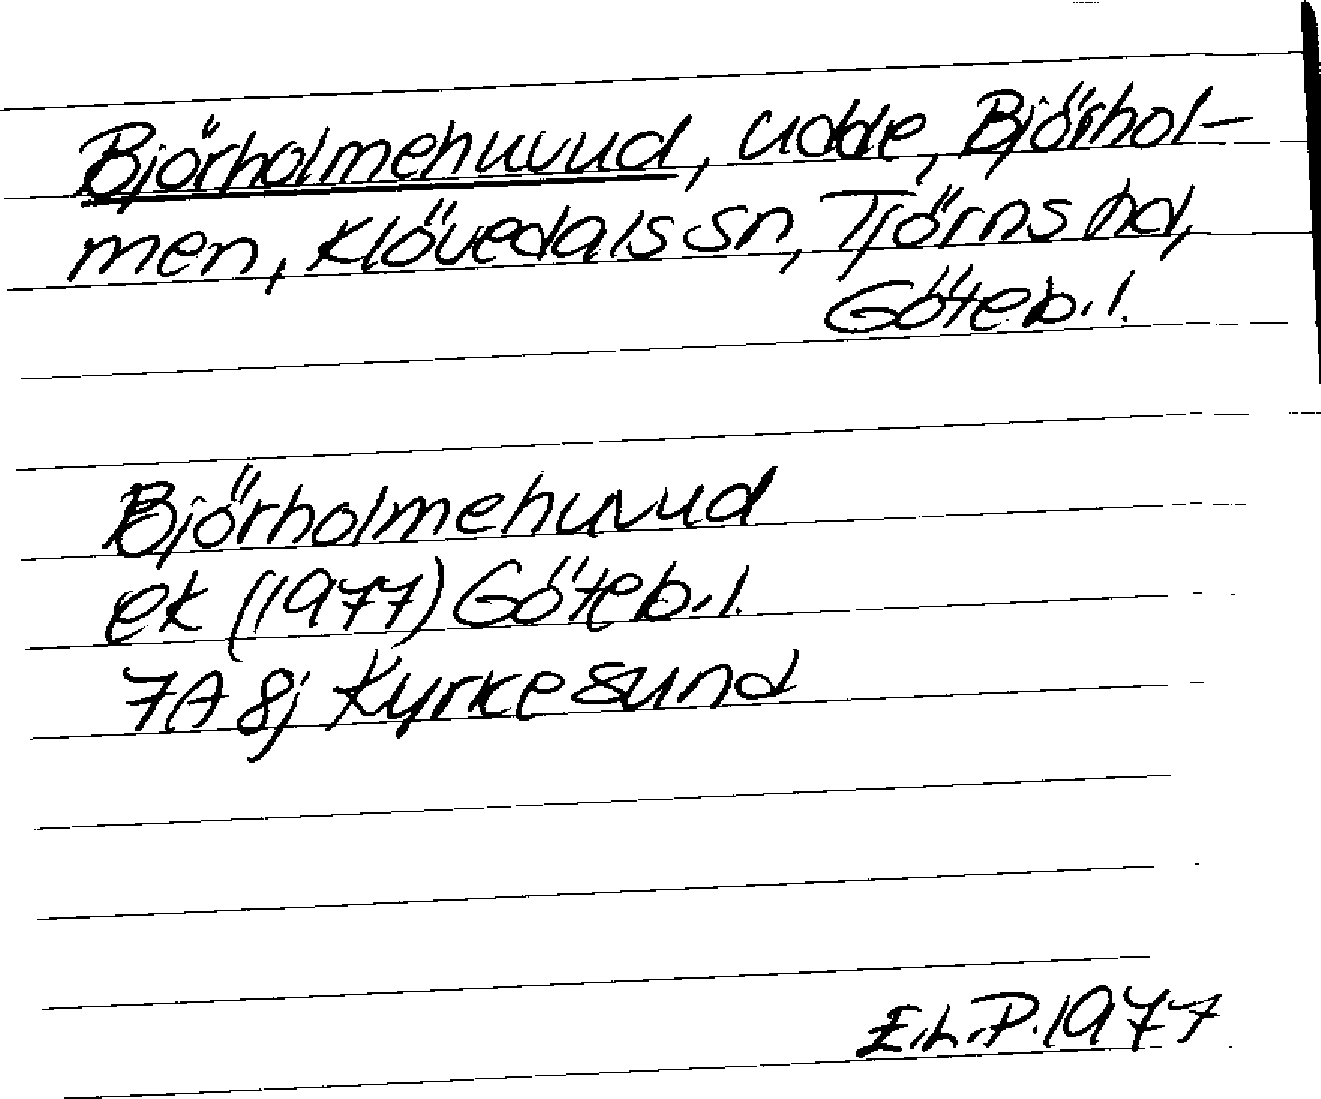 Björholmehuvud, udde, Björhol-
men, Klövedals sn, Tjörns hd,
Göteb. l.
Björholmehuvud
ek (1977) Göteb. l.
7A 8j Kyrkesund
E.L.P. 1977